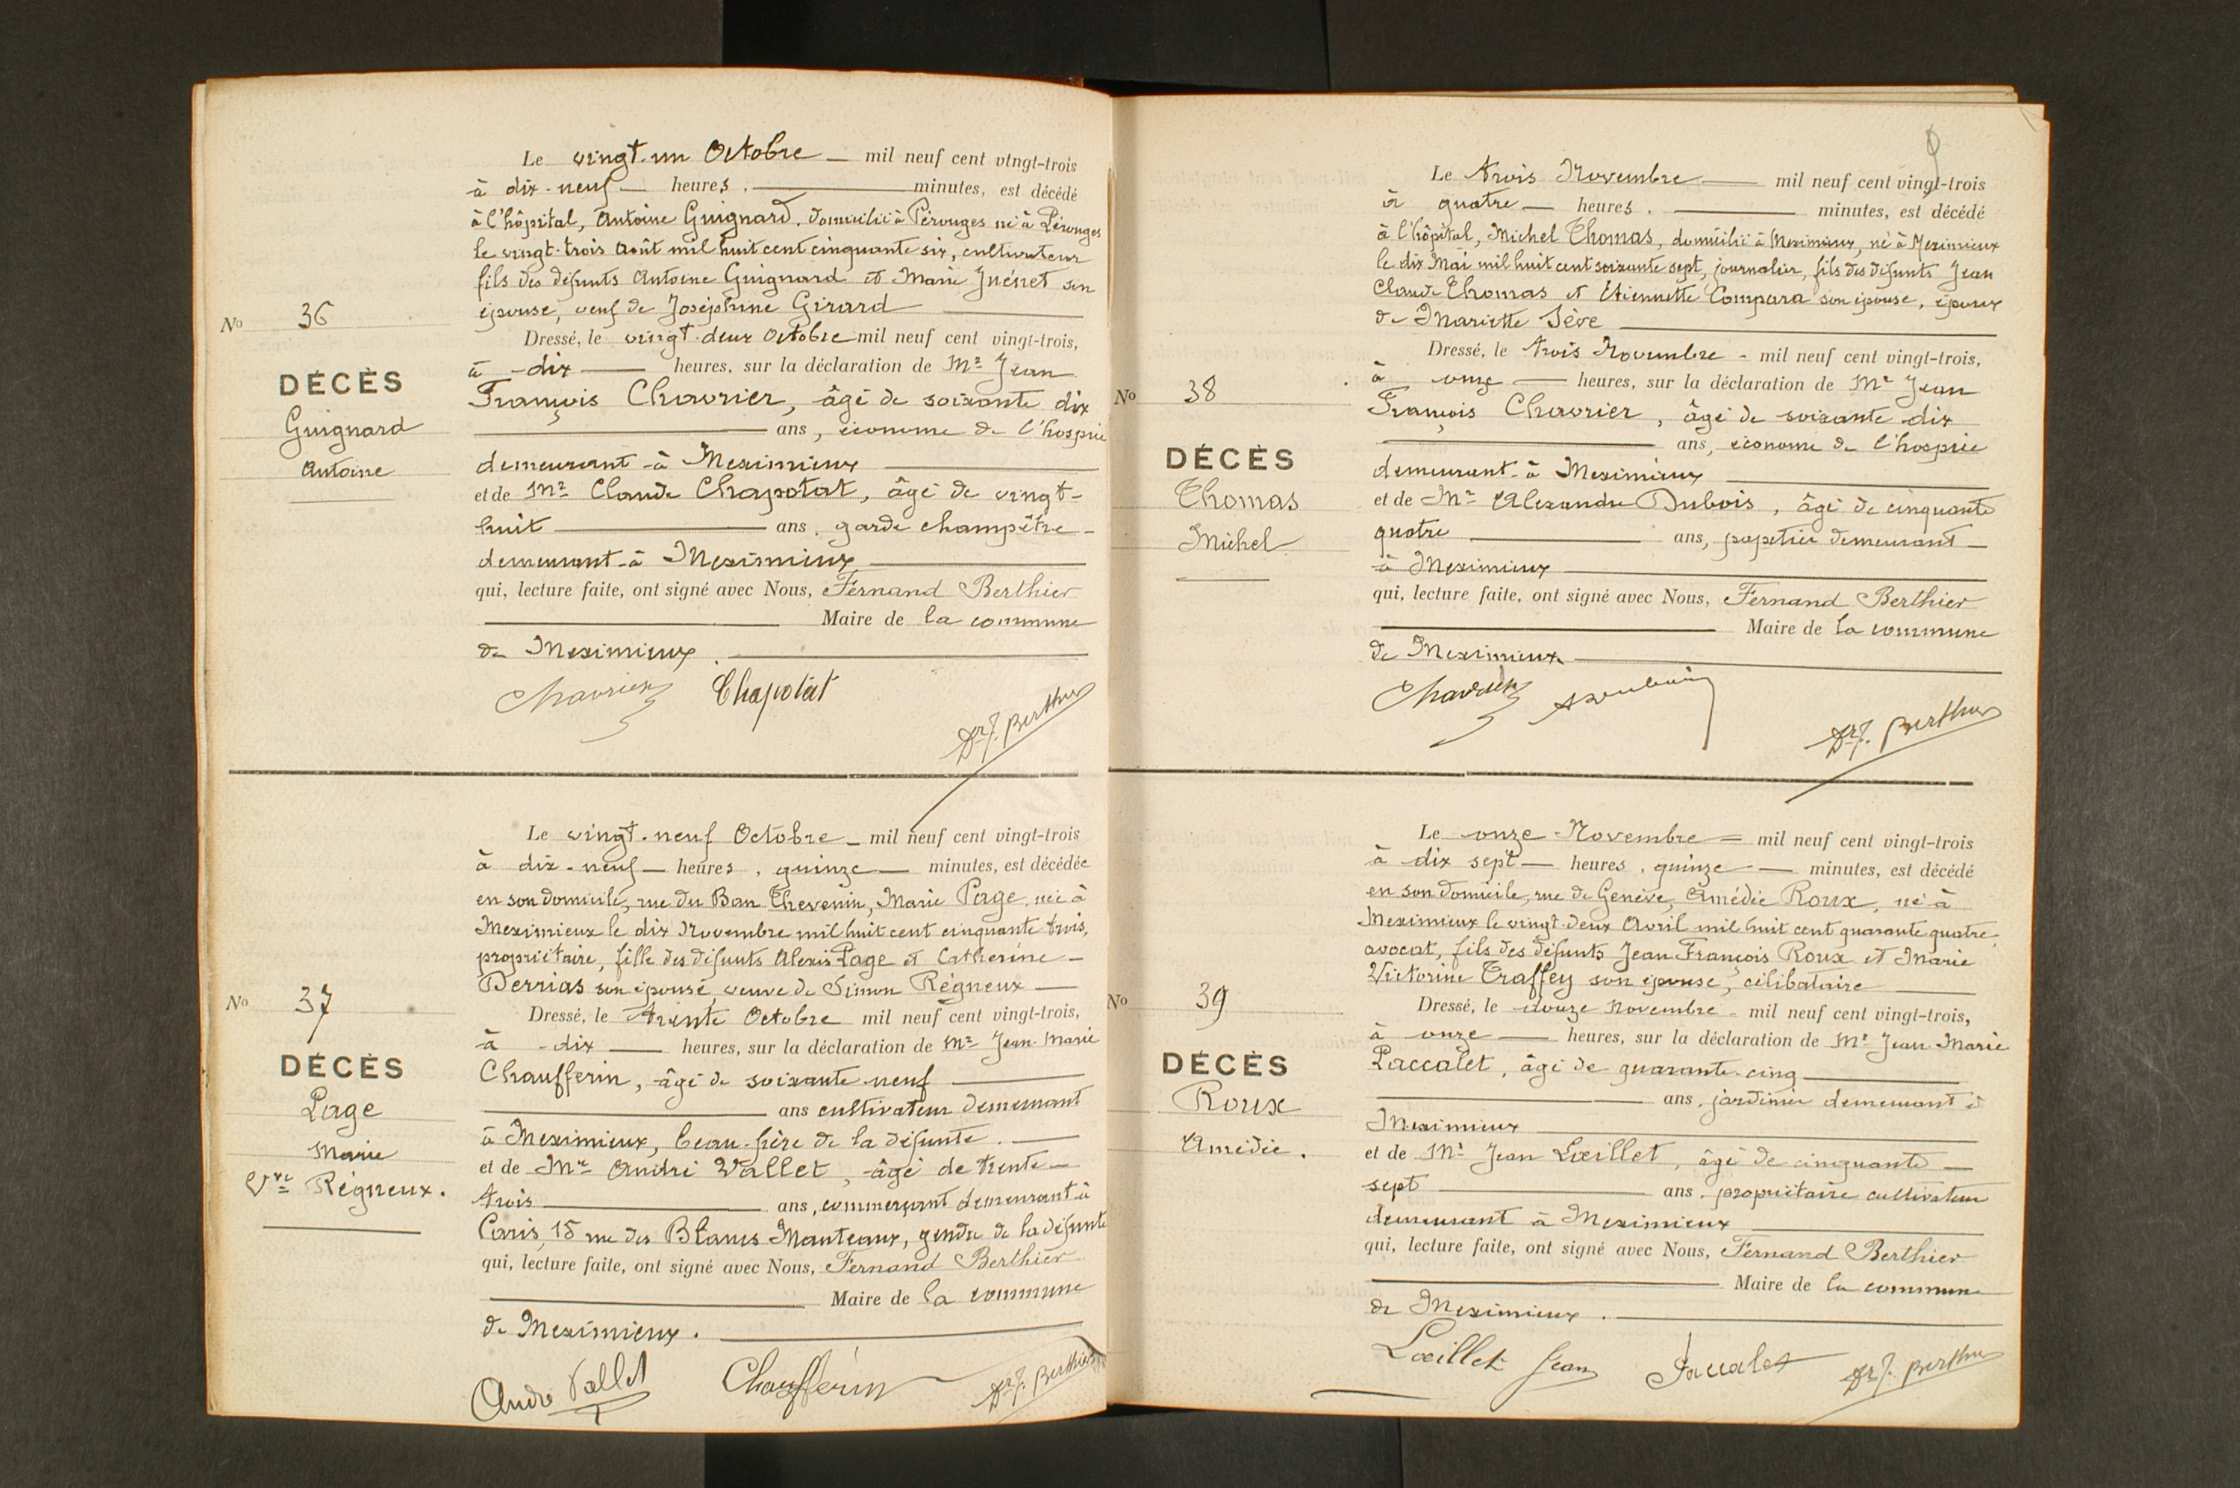 Le vingt-un Octobre mil neuf cent vingt-trois
à dix-neuf heures, minutes, est décédé
à l'hôpital, Antoine Guignard, domicilié à Pérouges né à Pérouges
le vingt-trois Août mil huit cent cinquante six, cultivateur
fils des défunts Antoine Guignard et Marie son
épouse, veuf de Joséphine Girard
Dressé, le vingt-deux Octobre mil neuf cent vingt-trois,
à dix heures, sur la déclaration de Mr Jean
François Chavrier, âgé de soixante dix
ans, économe de l'hospice
demeurant à Meximieux
et de Mr Claude Chapotat, âgé de vingt-
huit ans, garde champêtre
demeurant à Meximieux
qui, lecture faite, ont signé avec Nous, Fernand Berthier
Maire de la commune
de Meximieux.
Chavrier Chapotat Dr F. Berthier
No 36
DÉCÈS
Guignard
Antoine
Le vingt-neuf Octobre mil neuf cent vingt-trois
à dix-neuf heures, quinze minutes, est décédée
en son domicile, rue du Ban Thevenin, Marie Page, née à
Meximieux le dix Novembre mil huit cent cinquante trois,
propriétaire, fille des défunts Alexis Page et Catherine
Derrias son épouse, veuve de Simon Régneux
Dressé, le trente Octobre mil neuf cent vingt-trois,
à dix heures, sur la déclaration de Mr Jean-Marie
Chaufferin, âgé de soixante-neuf
ans cultivateur demeurant
à Meximieux, beau-frère de la défunte.
et de Mr André Vallet, âgé de trente
trois ans, commerçant demeurant à
Paris, 15 rue des Blancs Manteaux, gendre de la défunte
qui, lecture faite, ont signé avec Nous, Fernand Berthier
Maire de la commune
de Meximieux.
André Vallet Chaufferin Dr F. Berthier
No 37
DÉCÈS
Page
Marie
Vve Régneux.
Le trois Novembre mil neuf cent vingt-trois
à quatre heures, minutes, est décédé
à l'hôpital, Michel Thomas, domicilié à Meximieux, né à Meximieux
le dix Mai mil huit cent soixante sept, journalier, fils des défunts Jean
Claude Thomas et Etiennette Compara son épouse, époux
de Mariette Sève
Dressé, le trois Novembre mil neuf cent vingt-trois,
à onze heures, sur la déclaration de Mr Jean
François Chavrier, âgé de soixante dix
ans, économe de l'hospice
demeurant à Meximieux
et de Mr Alexandre Dubois, âgé de cinquante
quatre ans, papetier demeurant
à Meximieux
qui, lecture faite, ont signé avec Nous, Fernand Berthier
Maire de la commune
de Meximieux
Chavrier Dr F. Berthier
No 38
DÉCÈS
Thomas
Michel
Le onze Novembre mil neuf cent vingt-trois
à dix sept heures, quinze minutes, est décédé
en son domicile, rue de Genève, Amédée Roux, né à
Meximieux le vingt-deux Avril mil huit cent quarante quatre,
avocat, fils des défunts Jean François Roux et Marie
Victorine Traffey son épouse, célibataire
Dressé, le douze Novembre mil neuf cent vingt-trois,
à onze heures, sur la déclaration de Mr Jean Marie
Paccalet, âgé de quarante-cinq
ans, jardinier demeurant à
Meximieux
et de Mr Jean Lœillet, âgé de cinquante
sept ans, propriétaire cultivateur
demeurant à Meximieux
qui, lecture faite, ont signé avec Nous, Fernand Berthier
Maire de la commune
de Meximieux.
Lœillet Jean Paccalet Dr F. Berthier
No 39
DÉCÈS
Roux
Amédée.